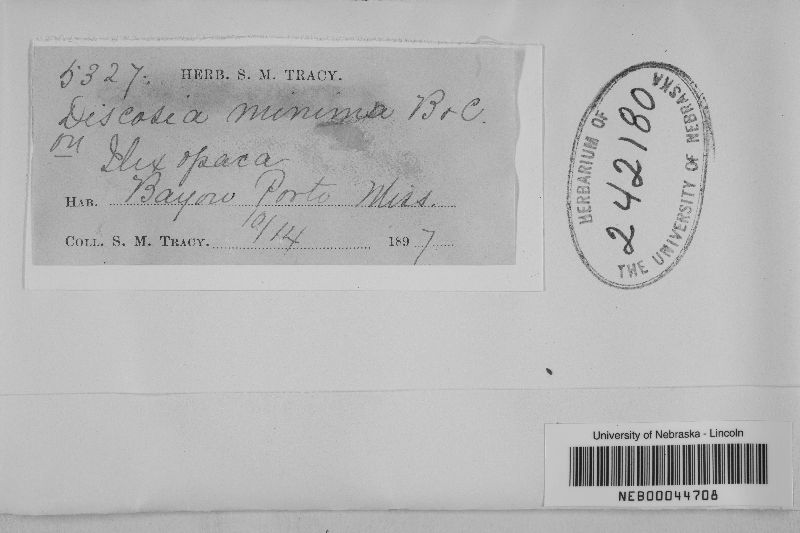 5327. HERB. S. M. TRACY.
Discosia minima B & C.
on Ilex opaca
HAB. Bayou Porto Miss.
COLL. S. M. TRACY. 10/14 1897
HERBARIUM OF
242180
THE UNIVERSITY OF NEBRASKA
University of Nebraska - Lincoln
NEB00044708